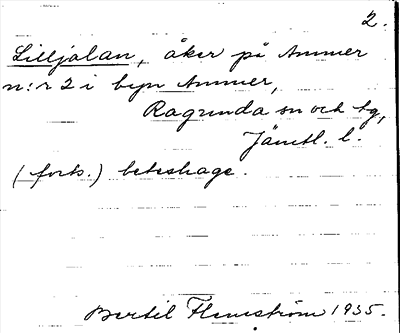 2.
Lilljalan, åker på Ammer
n:r 2 i byn Ammer,
Ragunda sn och tg,
Jämtl. l.
(forts.) beteshage.
Bertil Flemström 1935.